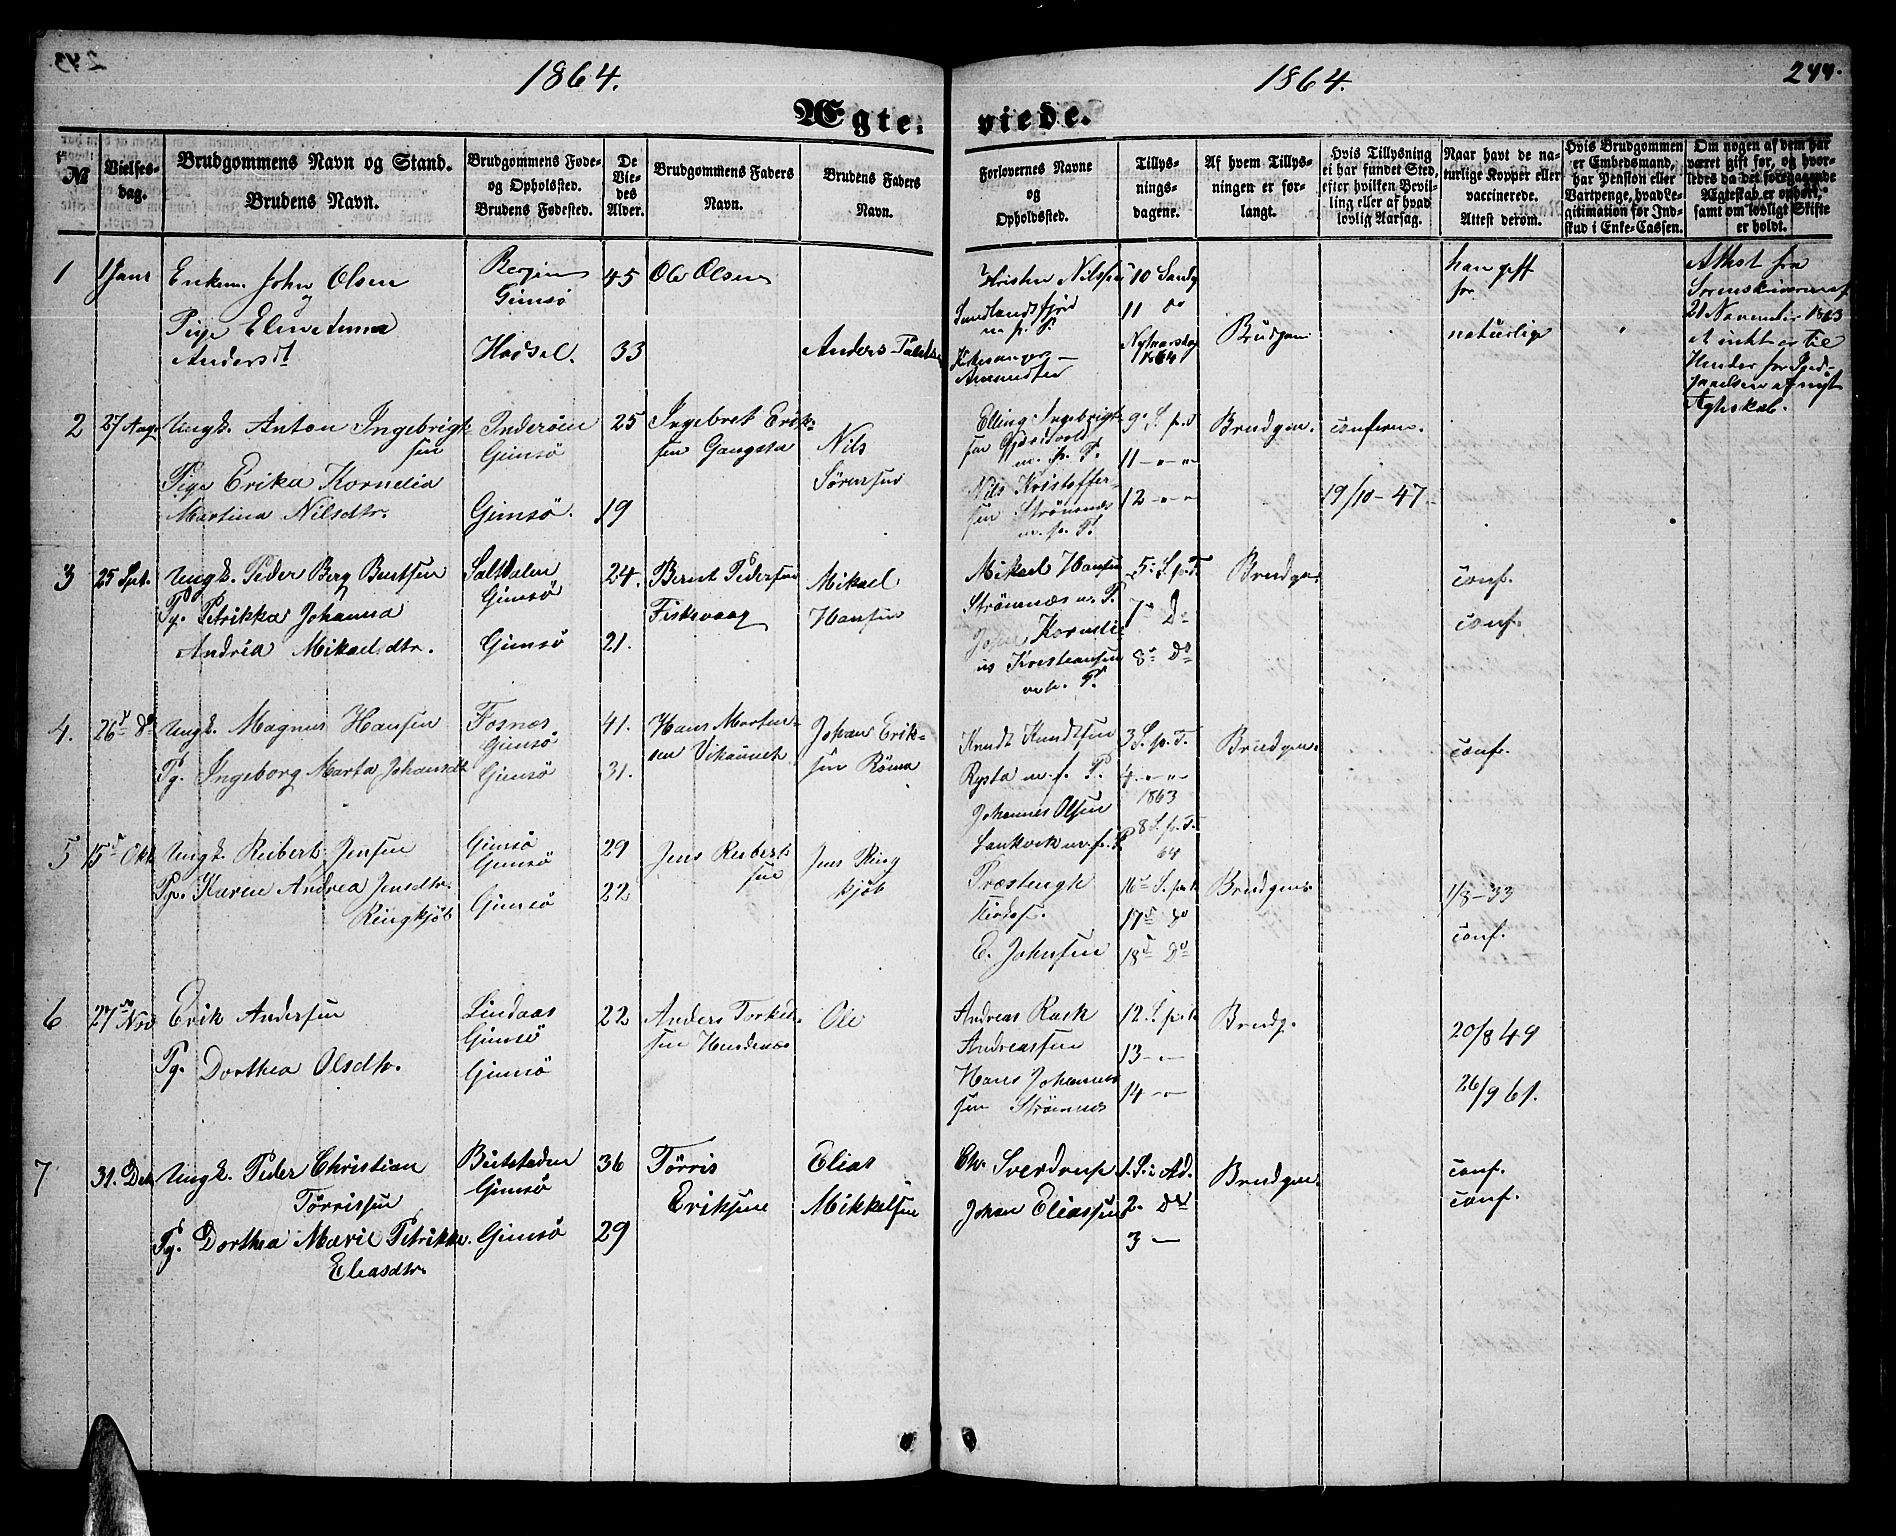 243
1864.
1864.
244.
Ægte-
viede.
№
Vielses-
dag.
Brudgommens Navn og Stand.
Brudens Navn.
Brudgommens Føde-
og Opholdssted.
Brudens Fødested.
De
Vie-
des
Alder.
Brudgommens Faders
Navn.
Brudens Faders
Navn.
Forlovernes Navne
og
Opholdssted.
Tillys-
nings-
dagene.
Af hvem Tillys-
ningen er for-
langt.
Hvis Tillysning
ei har fundet Sted,
efter hvilken Bevil-
ling eller af hvad
lovlig Aarsag.
Naar havt de na-
turlige Kopper eller
vaccinerede.
Attest derom.
Hvis Brudgommen
er Embedsmand,
har Pension eller
Vartpenge, hvad Le-
gitimation for Ind-
skud i Enke-Cassen.
Om nogen af dem har
været gift før, og hvor-
ledes da det foregaaende
Ægteskab er ophört,
samt om lovligt Skifte
er holdt.
1
1 Janr
Enkem. John Olsen
og
Pige Eline Anna
Andersdt
Gimsö
Hadsel.
45
33
Ole Olsen
Anders
Kristen Nilssen
Sundlandsfjord
m. f. P.
Amundsen
10 Sondg
11 do
Nytaarsdag
1864
Brudgom
han gift
for
naturlige
Attest fra
Sorenskriveren af
21 November 1863
at intet er til
Hinder for Ind-
gaaelsen af nyt
Ægteskab.
2
27 Aug.
Ungk. Anton Ingebrigt-
sen
Pige Erika Kornelia
Martina Nilsdtr.
Inderöen
Gimsö
Gimsö.
25
19
Ingebret Erik-
sen Gangsta
Nils
Sörensen
Elling Ingebrigt-
sen
m. f. P.
Nils Kristoffer-
sen Strömnes
m. f. P.
9. S. p. T
11 - " - "
12 - " - "
Brudgom.
conferm.
19/10-47.
3
25 Sept.
Ungk. Peder Berg Berntsen
Pg. Petrikka Johanna
Andrea Mikaelsdtr.
Saltdalen
Gimsö
Gimsö
24.
21.
Bernt Pedersen
Fiskvaag
Mikael
Hansen
Mikael Hansen
Strömnæs m. P.
Korneli-
us Kristiansen
m. f. P.
5. S. p. T.
7de Do
8de Do
Brudgom.
conf.
conf.
4.
26de Do
Ungk. Magnus Hansen
Pg. Ingeborg Marta Johansdt
Fosnæs
Gimsö
Gimsö
41.
31.
Hans Morten-
sen
Johan Erik-
sen Röma
Knudt Knudtsen
Rysta m. f. P.
Johannes Olsen
m. f. P.
3 S. p. T.
4. - " - "
1863
8 S. p. T.
64
Brudgom.
conf.
5
15de Okt
Ungk. Reibert Jensen
Pg. Karen Andrea Jensdtr.
Ringkjöb
Gimsö
Gimsö
Gimsö
29
22
Jens Reiberts
sen
Jens Ring
kjöb
E. Johnsen
16de S. p. t.
17de do
18de Do
Brudgom.
1/8-33
conf.
6
27de Nov
Erik Andersen
Pg. Dorthea Olsdtr.
Lindaas
Gimsö
Gimsö
22
Anders Torkel-
sen
Ole
Andreas Rask
Andreassen
Hans Johannes
sen Strömnes
12. S. p. t.
13 - "
14 - "
Brudg.
20/8 49
26/9 61.
7
31. Dec
Ungk. Peder Christian
Törrissen
Pg. Dorthea Marie Petrikke
Eliasdtr.
Beitstaden
Gimsö
Gimsö
36
29
Törris
Eriksen
Elias
Mikkelsen
Chr. Sverdrup
Johan Eliassen
1. S. i Ad.
2. Do
3 -
Brudgom.
conf.
conf.